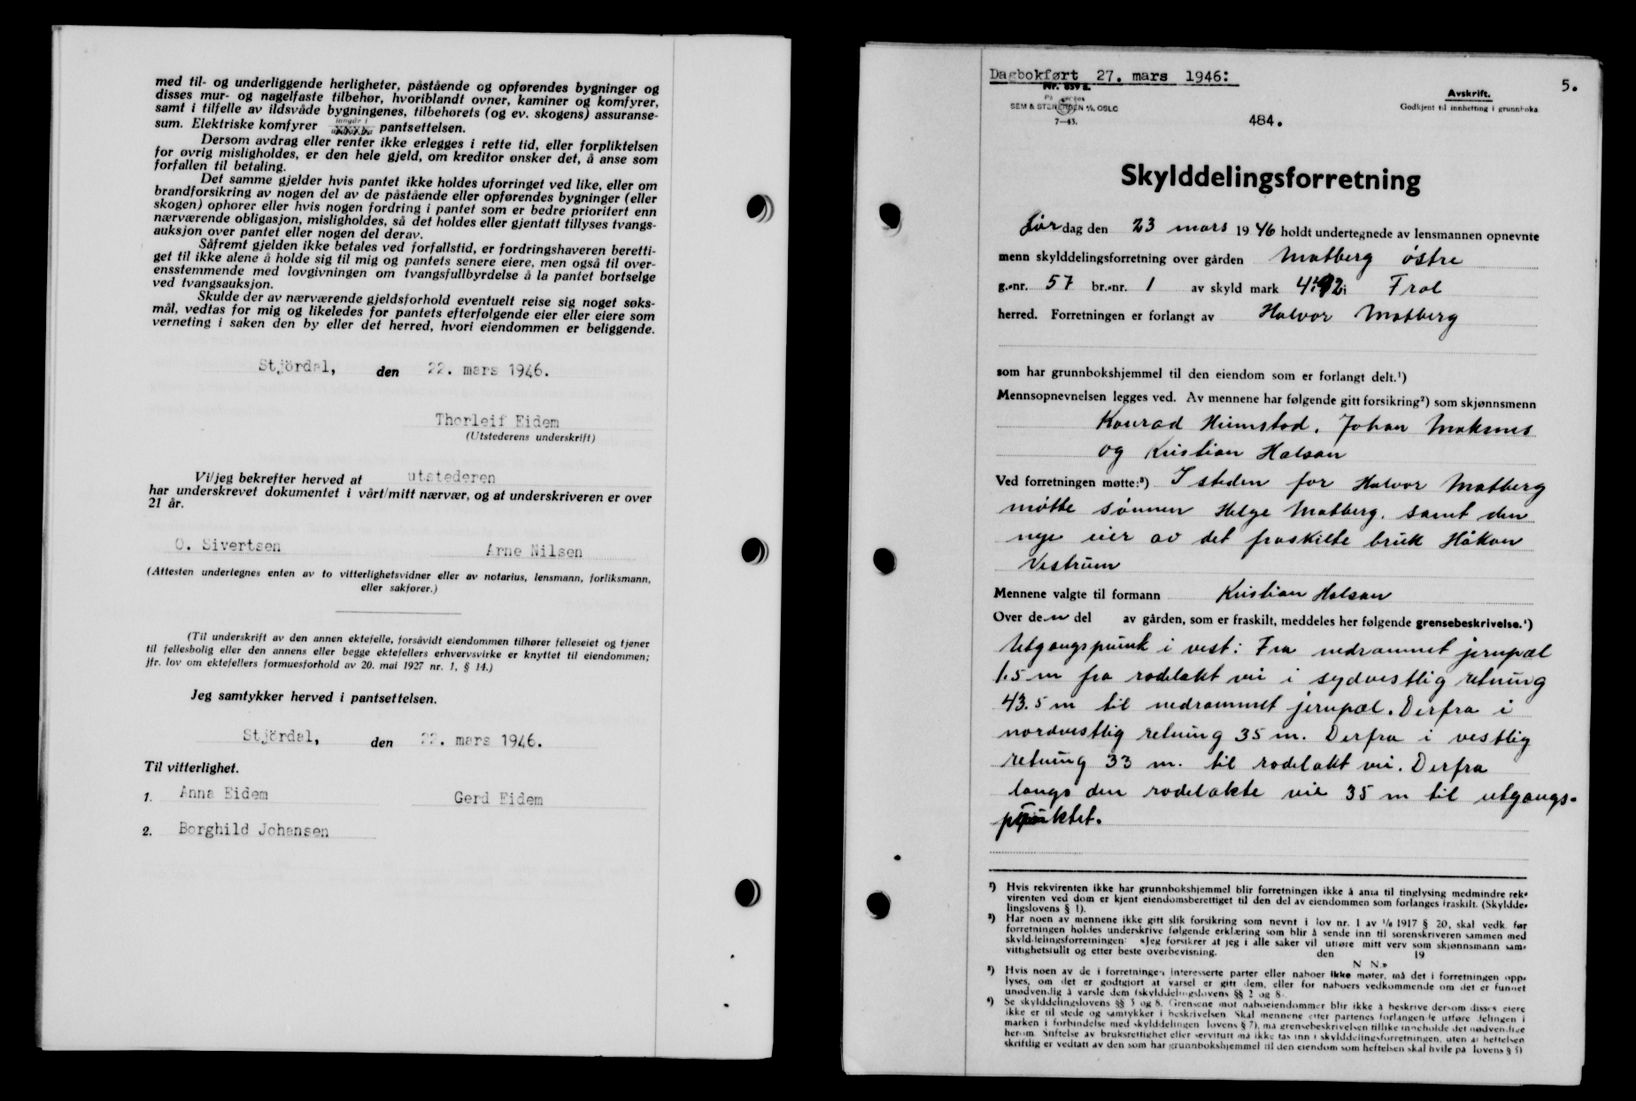 med til- og underliggende herligheter, påstående og opførendes bygninger og
disses mur- og nagelfaste tilbehør, hvoriblandt ovner, kaminer og komfyrer,
samt i tilfelle av ildsvåde bygningenes, tilbehørets (og ev. skogens) assuranse-
sum. Elektriske komfyrer pantsettelsen.
Dersom avdrag eller renter ikke erlegges i rette tid, eller forpliktelsen
for øvrig misligholdes, er den hele gjeld, om kreditor ønsker det, å anse som
forfallen til betaling.
Det samme gjelder hvis pantet ikke holdes uforringet ved like, eller om
brandforsikring av nogen del av de påstående eller opførendes bygninger (eller
skogen) ophører eller hvis nogen fordring i pantet som er bedre prioritert enn
nærværende obligasjon, misligholdes, så det holdes eller gjentatt tillyses tvangs-
auksjon over pantet eller nogen del derav.
Såfremt gjelden ikke betales ved forfallstid, er fordringshaveren beretti-
get til ikke alene å holde sig til mig og pantets senere eiere, men også til over-
ensstemmende med lovgivningen om tvangsfullbyrdelse å la pantet bortselge
ved tvangsauksjon.
Skulde der av nærværende gjeldsforhold eventuelt reise sig noget søks-
mål, vedtas for mig og likeledes for pantets efterfølgende eier eller eiere som
verneting i saken den by eller det herred, hvori eiendommen er beliggende.
Stjördal, den 22. mars 1946.
Thorleif Eidem
(Utstederens underskrift)
Vi/jeg bekrefter herved at utstederen
har underskrevet dokumentet i vårt/mitt nærvær, og at underskriveren er over
21 år.
O. Sivertsen Arne Nilsen
(Attesten undertegnes enten av to vitterlighetsvidner eller av notarius, lensmann, forliksmann,
eller sakfører.)
(Til underskrift av den annen ektefelle, forsåvidt eiendommen tilhører felleseiet og tjener
til fellesbolig eller den annens eller begge ektefellers erhvervsvirke er knyttet til eiendommen;
jfr. lov om ektefellers formuesforhold av 20. mai 1927 nr. 1, § 14.)
Jeg samtykker herved i pantsettelsen.
Stjördal, den 22. mars 1946.
Til vitterlighet.
1. Anna Eidem Gerd Eidem
2. Borghild Johansen
Dagbokført 27. mars 1946: 5.
SEM & STENERSEN A/S, OSLO
7-43.
Avskrift.
Godkjent til innhefting i grunnboka
484.
Skylddelingsforretning
Lördag den 23 mars 1946 holdt undertegnede av lensmannen opnevnte
menn skylddelingsforretning over gården Matberg östre
g.-nr. 57 br.-nr. 1 av skyld mark 4.92 i Frol
herred. Forretningen er forlangt av Halvor Matberg
som har grunnbokshjemmel til den eiendom som er forlangt delt.¹)
Mennsopnevnelsen legges ved. Av mennene har følgende gitt forsikring²) som skjønnsmenn
Konrad Heimstad, Johan Maksnes
og Kristian Halsan
Ved forretningen møtte:³) I steden for Halvor Matberg
mötte sönnen Helge Matberg, samt den
nye eier av det fraskilte bruk Håkon
Vestrum
Mennene valgte til formann Kristian Halsan
Over den del av gården, som er fraskilt, meddeles her følgende grensebeskrivelse.⁴)
Utgangspunkt i vest: Fra nedrammet jernpæl
1.5 m fra rodelakt vei i sydvestlig retning
43.5 m til nedrammet jernpæl. Derfra i
nordvestlig retning 35 m. Derfra i vestlig
retning 33 m. til rodelakt vei. Derfra
langs den rodelakte vei 35 m til utgangs-
punktet.
¹) Hvis rekvirenten ikke har grunnbokshjemmel blir forretningen ikke å anta til tinglysing medmindre rek-
virenten ved dom er kjent eiendomsberettiget til den del av eiendommen som forlanges fraskilt. (Skyldde-
lingslovens § 1).
²) Har noen av mennene ikke gitt slik forsikring som nevnt i lov nr. 1 av 1/6 1917 § 20, skal vedk. før
forretningen holdes underskrive følgende erklæring som blir å sende inn til sorenskriveren sammen med
skylddelingsforretningen: «Jeg forsikrer at jeg i alle saker vil utføre mitt verv som skjønnsmann sam-
vittighetsfullt og etter beste overbevisning. den 19
N. N.»
³) Hvis noen av de i forretningen interesserte parter eller naboer ikke møter, må det i forretningen opp-
lyses, om det er godtgjort at varsel er gitt dem, eller for naboers vedkommende om det er funnet
unødvendig å varsle dem (skylddelingslovens §§ 2 og 8).
⁴) Se skylddelingslovens §§ 3 og 8. Grensene mot naboeiendommer blir ikke å beskrive dersom disses eiere
ikke er til stede og samtykker i beskrivelsen. Skal mennene etter partenes forlangende utføre delingen i
marken i forbindelse med skylddelingen (lovens § 7), må grensebeskrivelsen tillike inneholde det nødvendige
herom. Stiftelse av bruksrettighet eller servitutt må ikke tas inn i skylddelingsforretningen, uten at heftelsen
skriftlig er vedtatt av den som har grunnbokshjemmel til den eiendom som heftelsen skal hvile på (lovens § 5)